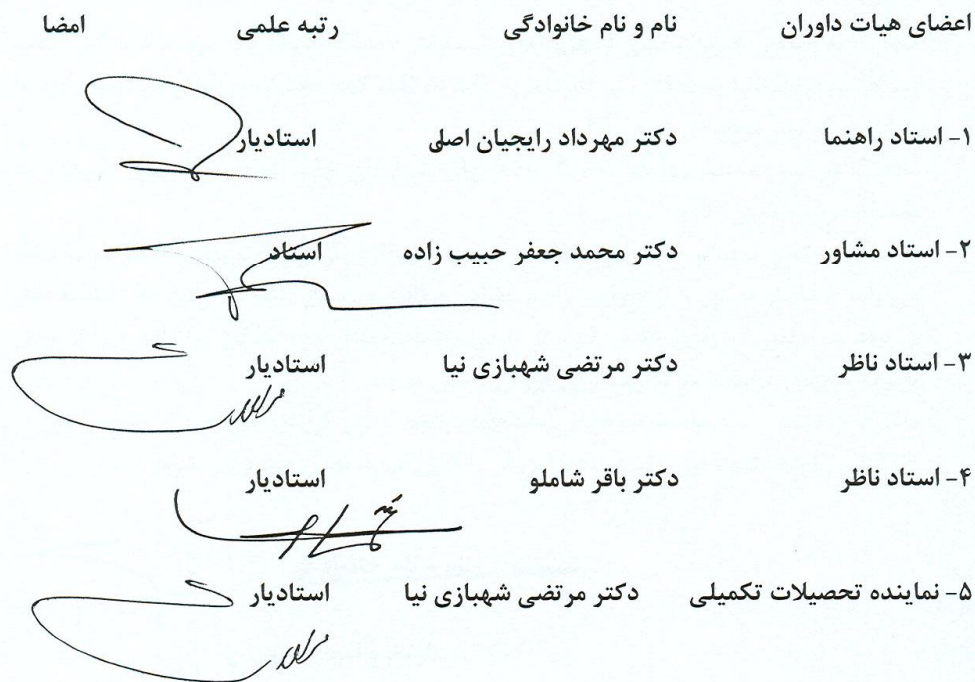 اعضای هیات داوران نام و نام خانوادگی رتبه علمی امضا
۱- استاد راهنما دکتر مهرداد رایجیان اصلی استادیار
۲- استاد مشاور دکتر محمد جعفر حبیب زاده استاد
۳- استاد ناظر دکتر مرتضی شهبازی نیا استادیار
۴- استاد ناظر دکتر باقر شاملو استادیار
۵- نماینده تحصیلات تکمیلی دکتر مرتضی شهبازی نیا استادیار